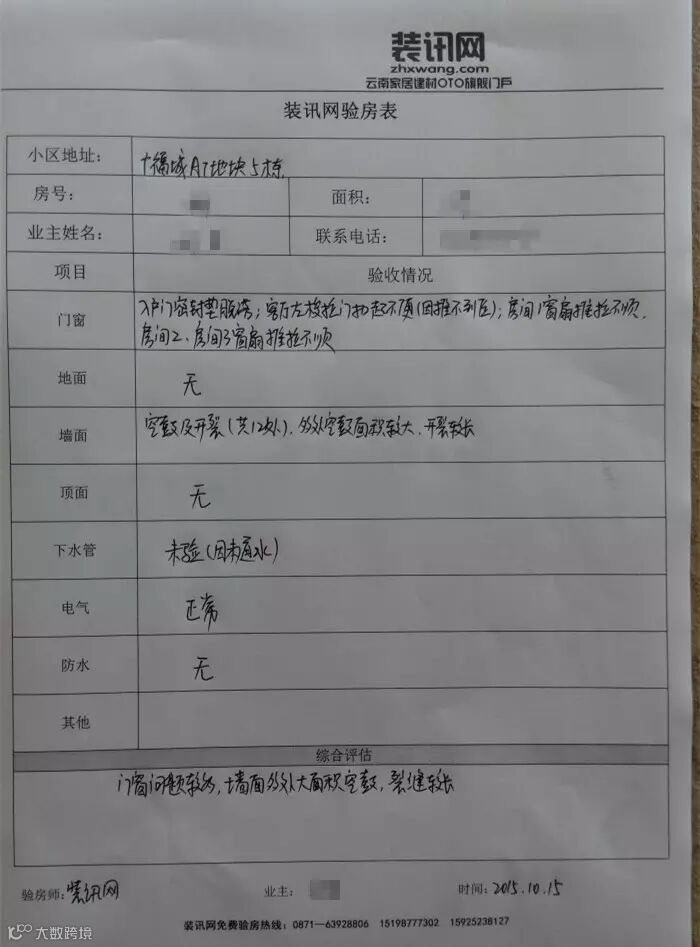 装讯网
zhxwang.com
云南家居建材OTO旗舰门户
装讯网验房表
小区地址： 十福城A7地块5栋
房号： 面积：
业主姓名： 联系电话：
项目 验收情况
门窗 入户门密封垫脱落；客厅左梭拉门扣起不顺(因推不到位)；房间1窗扇推拉不顺.
房间2、房间3窗扇推拉不顺
地面 无
墙面 空鼓及开裂(共12处)、多处空鼓面积较大、开裂较长
顶面 无
下水管 未验(因未通水)
电气 正常
防水 无
其他
综合评估
门窗问题较多，墙面多处大面积空鼓，裂缝较长
验房师：装讯网 业主： 时间：2015.10.15
装讯网免费验房热线：0871—63928806 15198777302 15925238127
大数跨境